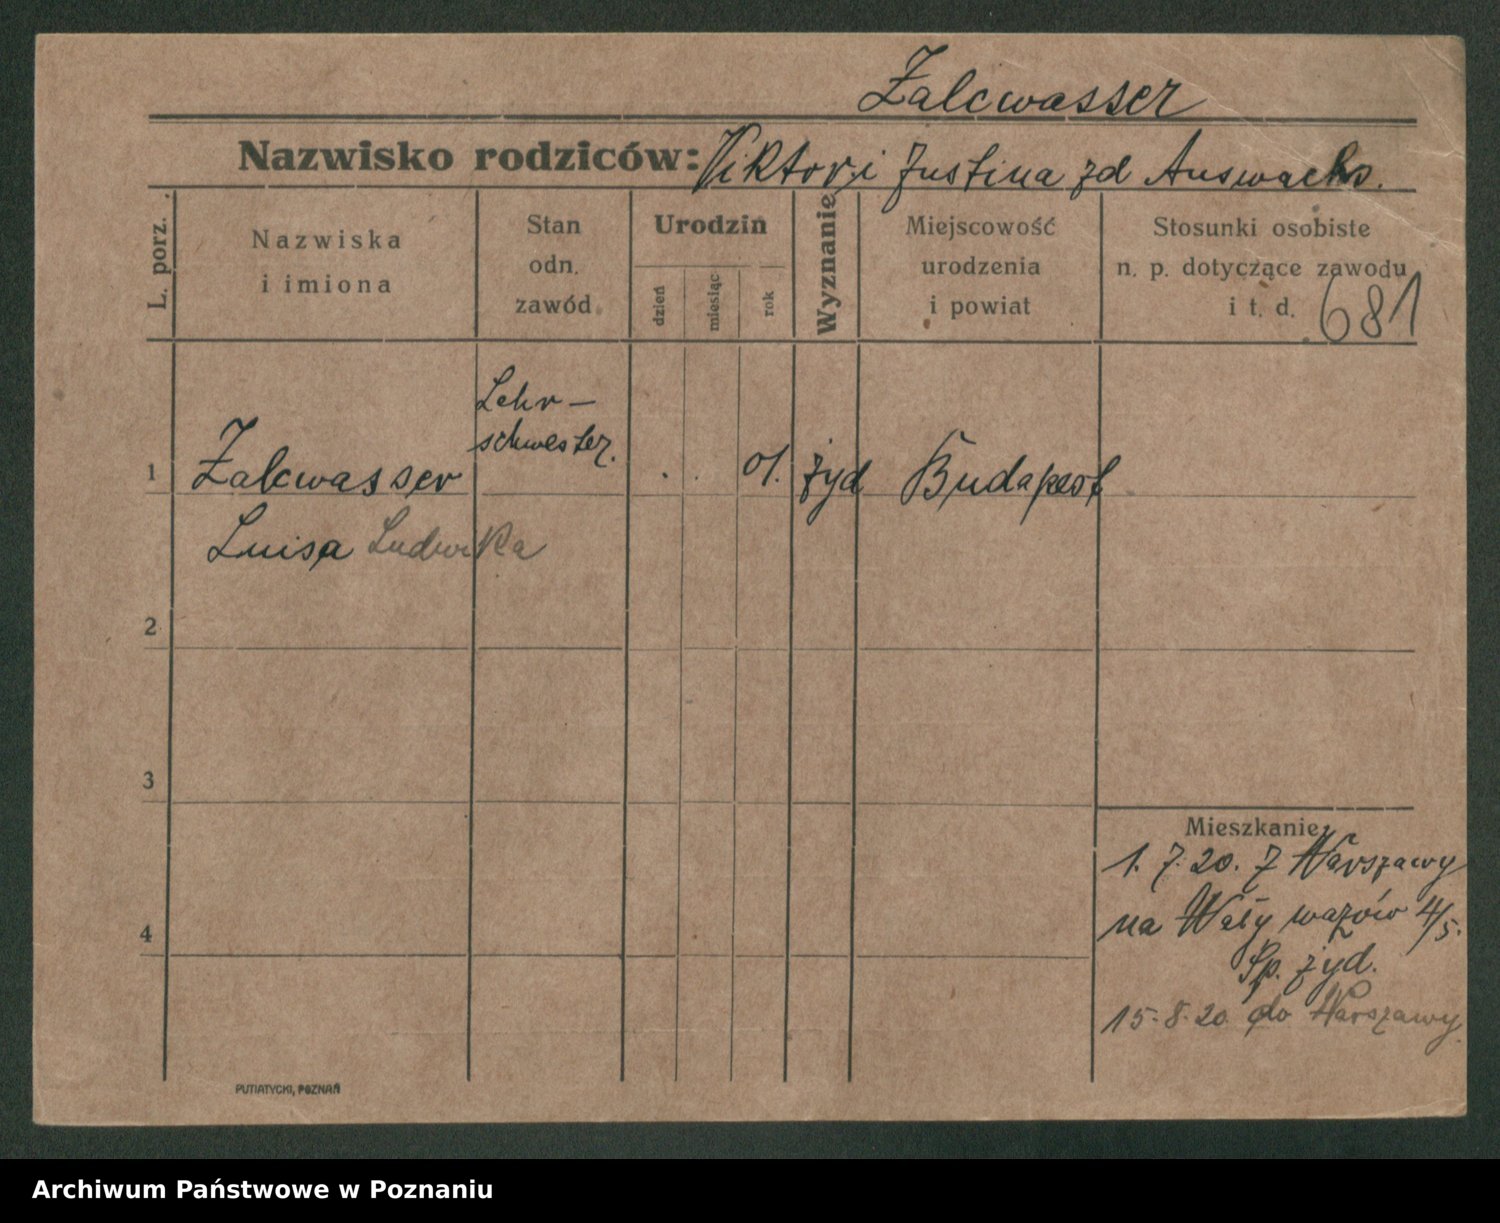 Zalcwasser
Nazwisko rodziców: Viktor i Justina zd Auswachs.
L. porz.
Nazwiska
i imiona
Stan
odn.
zawód.
Urodzin
dzień
miesiąc
rok
Wyznanie
Miejscowość
urodzenia
i powiat
Stosunki osobiste
n. p. dotyczące zawodu
i t. d. 681
Lehr-
schwester.
1 Zalcwasser 01. żyd Budapest
Luisa Ludwika
2
3
Mieszkanie
1. 7. 20. z Warszawy
na Wały wazów 4/5.
4
Sp. żyd.
15. 8. 20 do Warszawy.
PUTIATYCKI, POZNAŃ
Archiwum Państwowe w Poznaniu